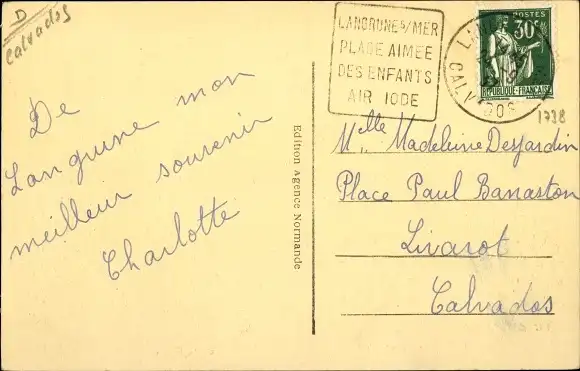 D
Calvados
LANGRUNE S/MER
PLAGE AIMEE
DES ENFANTS
AIR IODE
POSTES
30c
REPUBLIQUE-FRANÇAISE
CALVADOS
1738
De
Langrune mon
meilleur souvenir
Charlotte
Edition Agence Normande
Melle Madeleine Desjardin
Place Paul Banaston
Livarot
Calvados